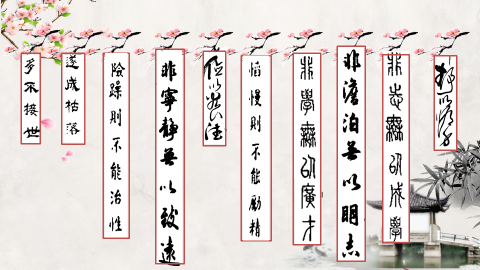 靜以修身
非志無以成學
非澹泊無以明志
非學無以廣才
慆慢則不能勵精
儉以養德
非寧靜無以致遠
險躁則不能治性
遂成枯落
多不接世